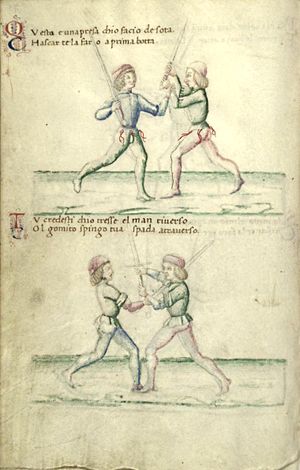 Questa e una presa chio facio de sota.
Chascar te la faro a prima botta.
Tu credesti chio tresse el man riverso.
Col gomito spingo tua spada atraverso.